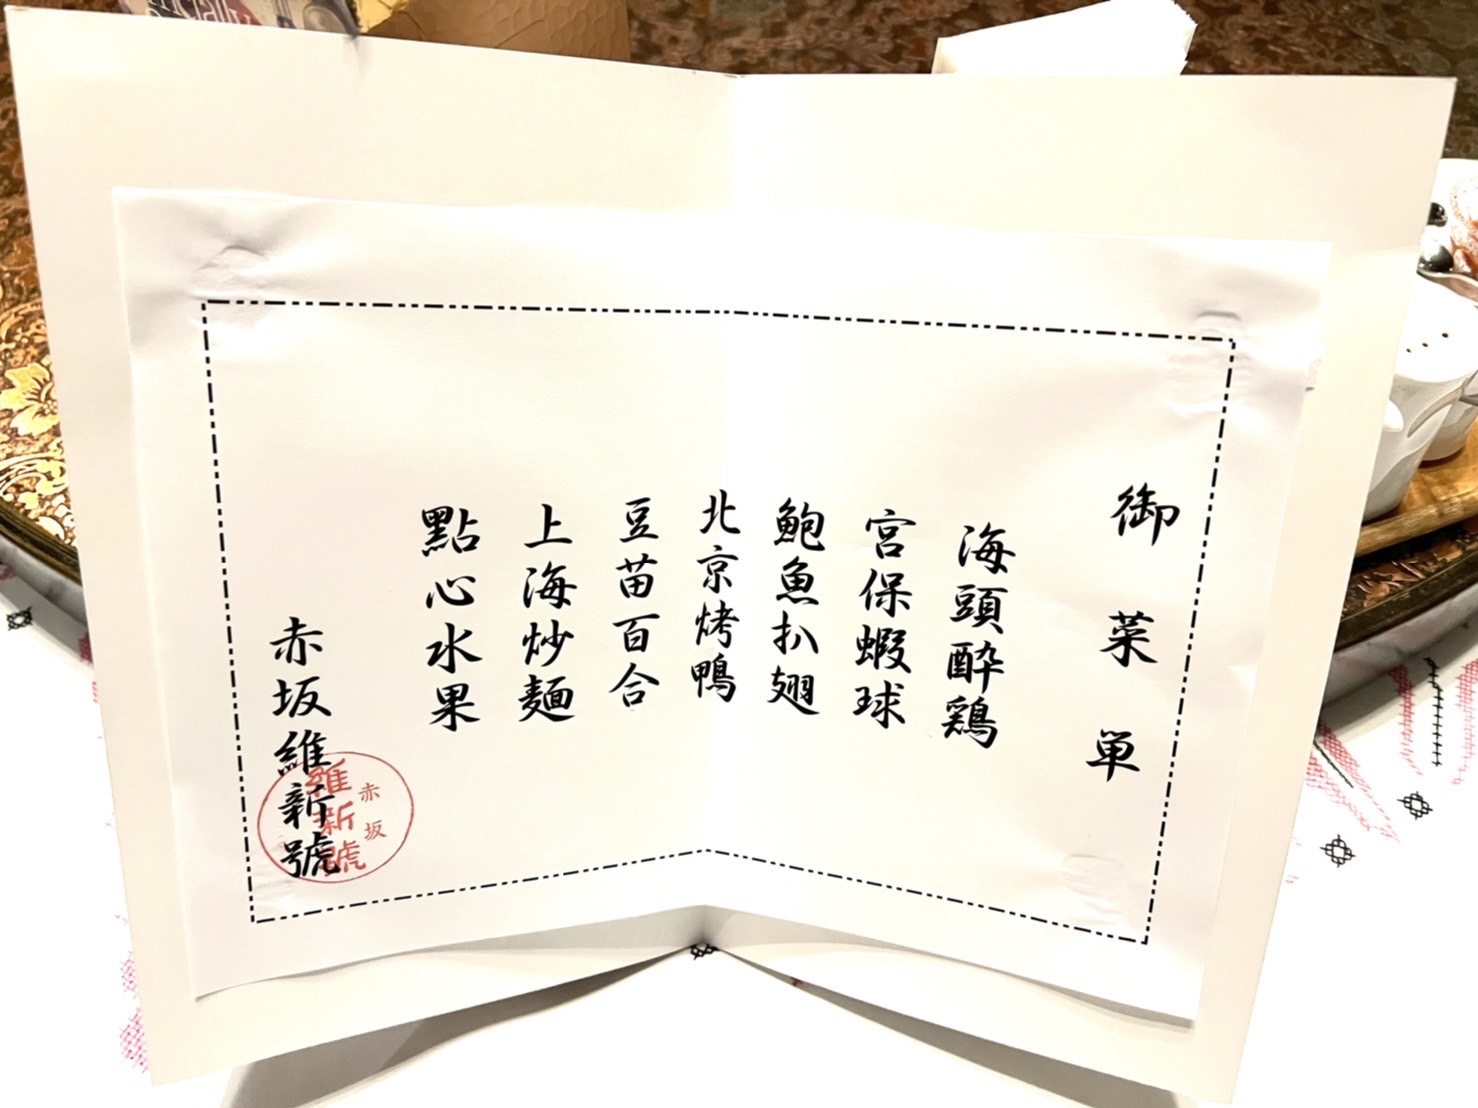 御菜単
海頭酔鶏
宮保蝦球
鮑魚扒翅
北京烤鴨
豆苗百合
上海炒麺
點心水果
赤坂維新號
赤坂
維新號